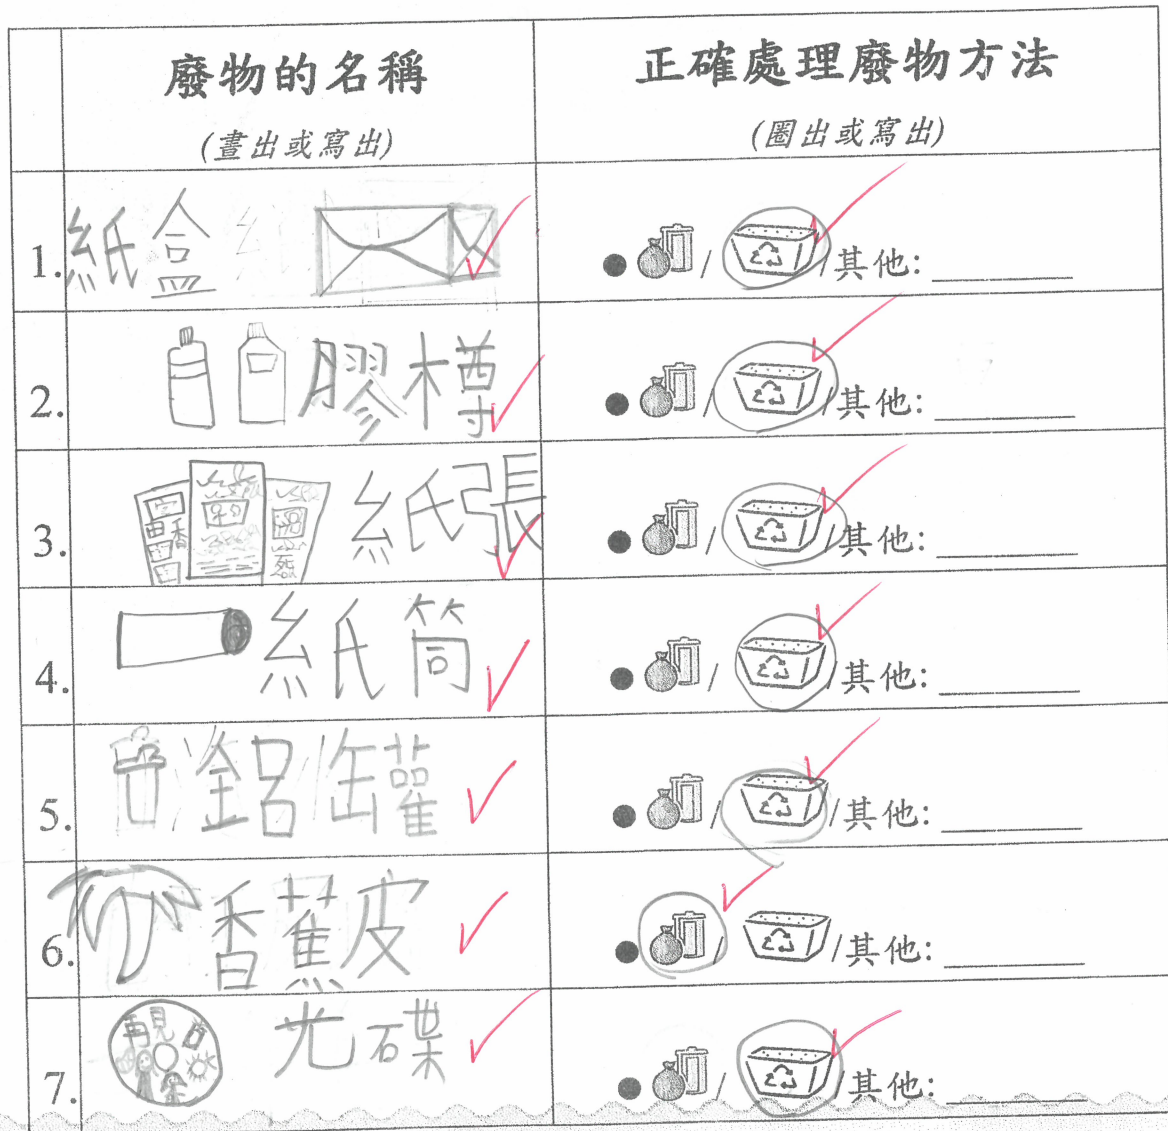 廢物的名稱
(畫出或寫出)
正確處理廢物方法
(圈出或寫出)
1. 紙盒
/ /其他: ________
2. 膠樽
/ /其他: ________
3. 紙張
/ /其他: ________
4. 紙筒
/ /其他: ________
5. 鋁罐
/ /其他: ________
6. 香蕉皮
/ /其他: ________
7. 再見 光碟
/ /其他: ________